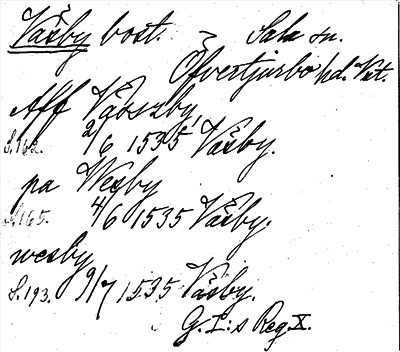 Väsby bost. Sala sn.
Öfvertjurbo hd. Vst.
Aff Väbszby
S. 162. 2/6 1535 Väsby.
pa Wesby
S. 165. 4/6 1535 Väsby.
wesby
S. 193. 9/7 1535 Väsby.
G. I:s Reg. X.